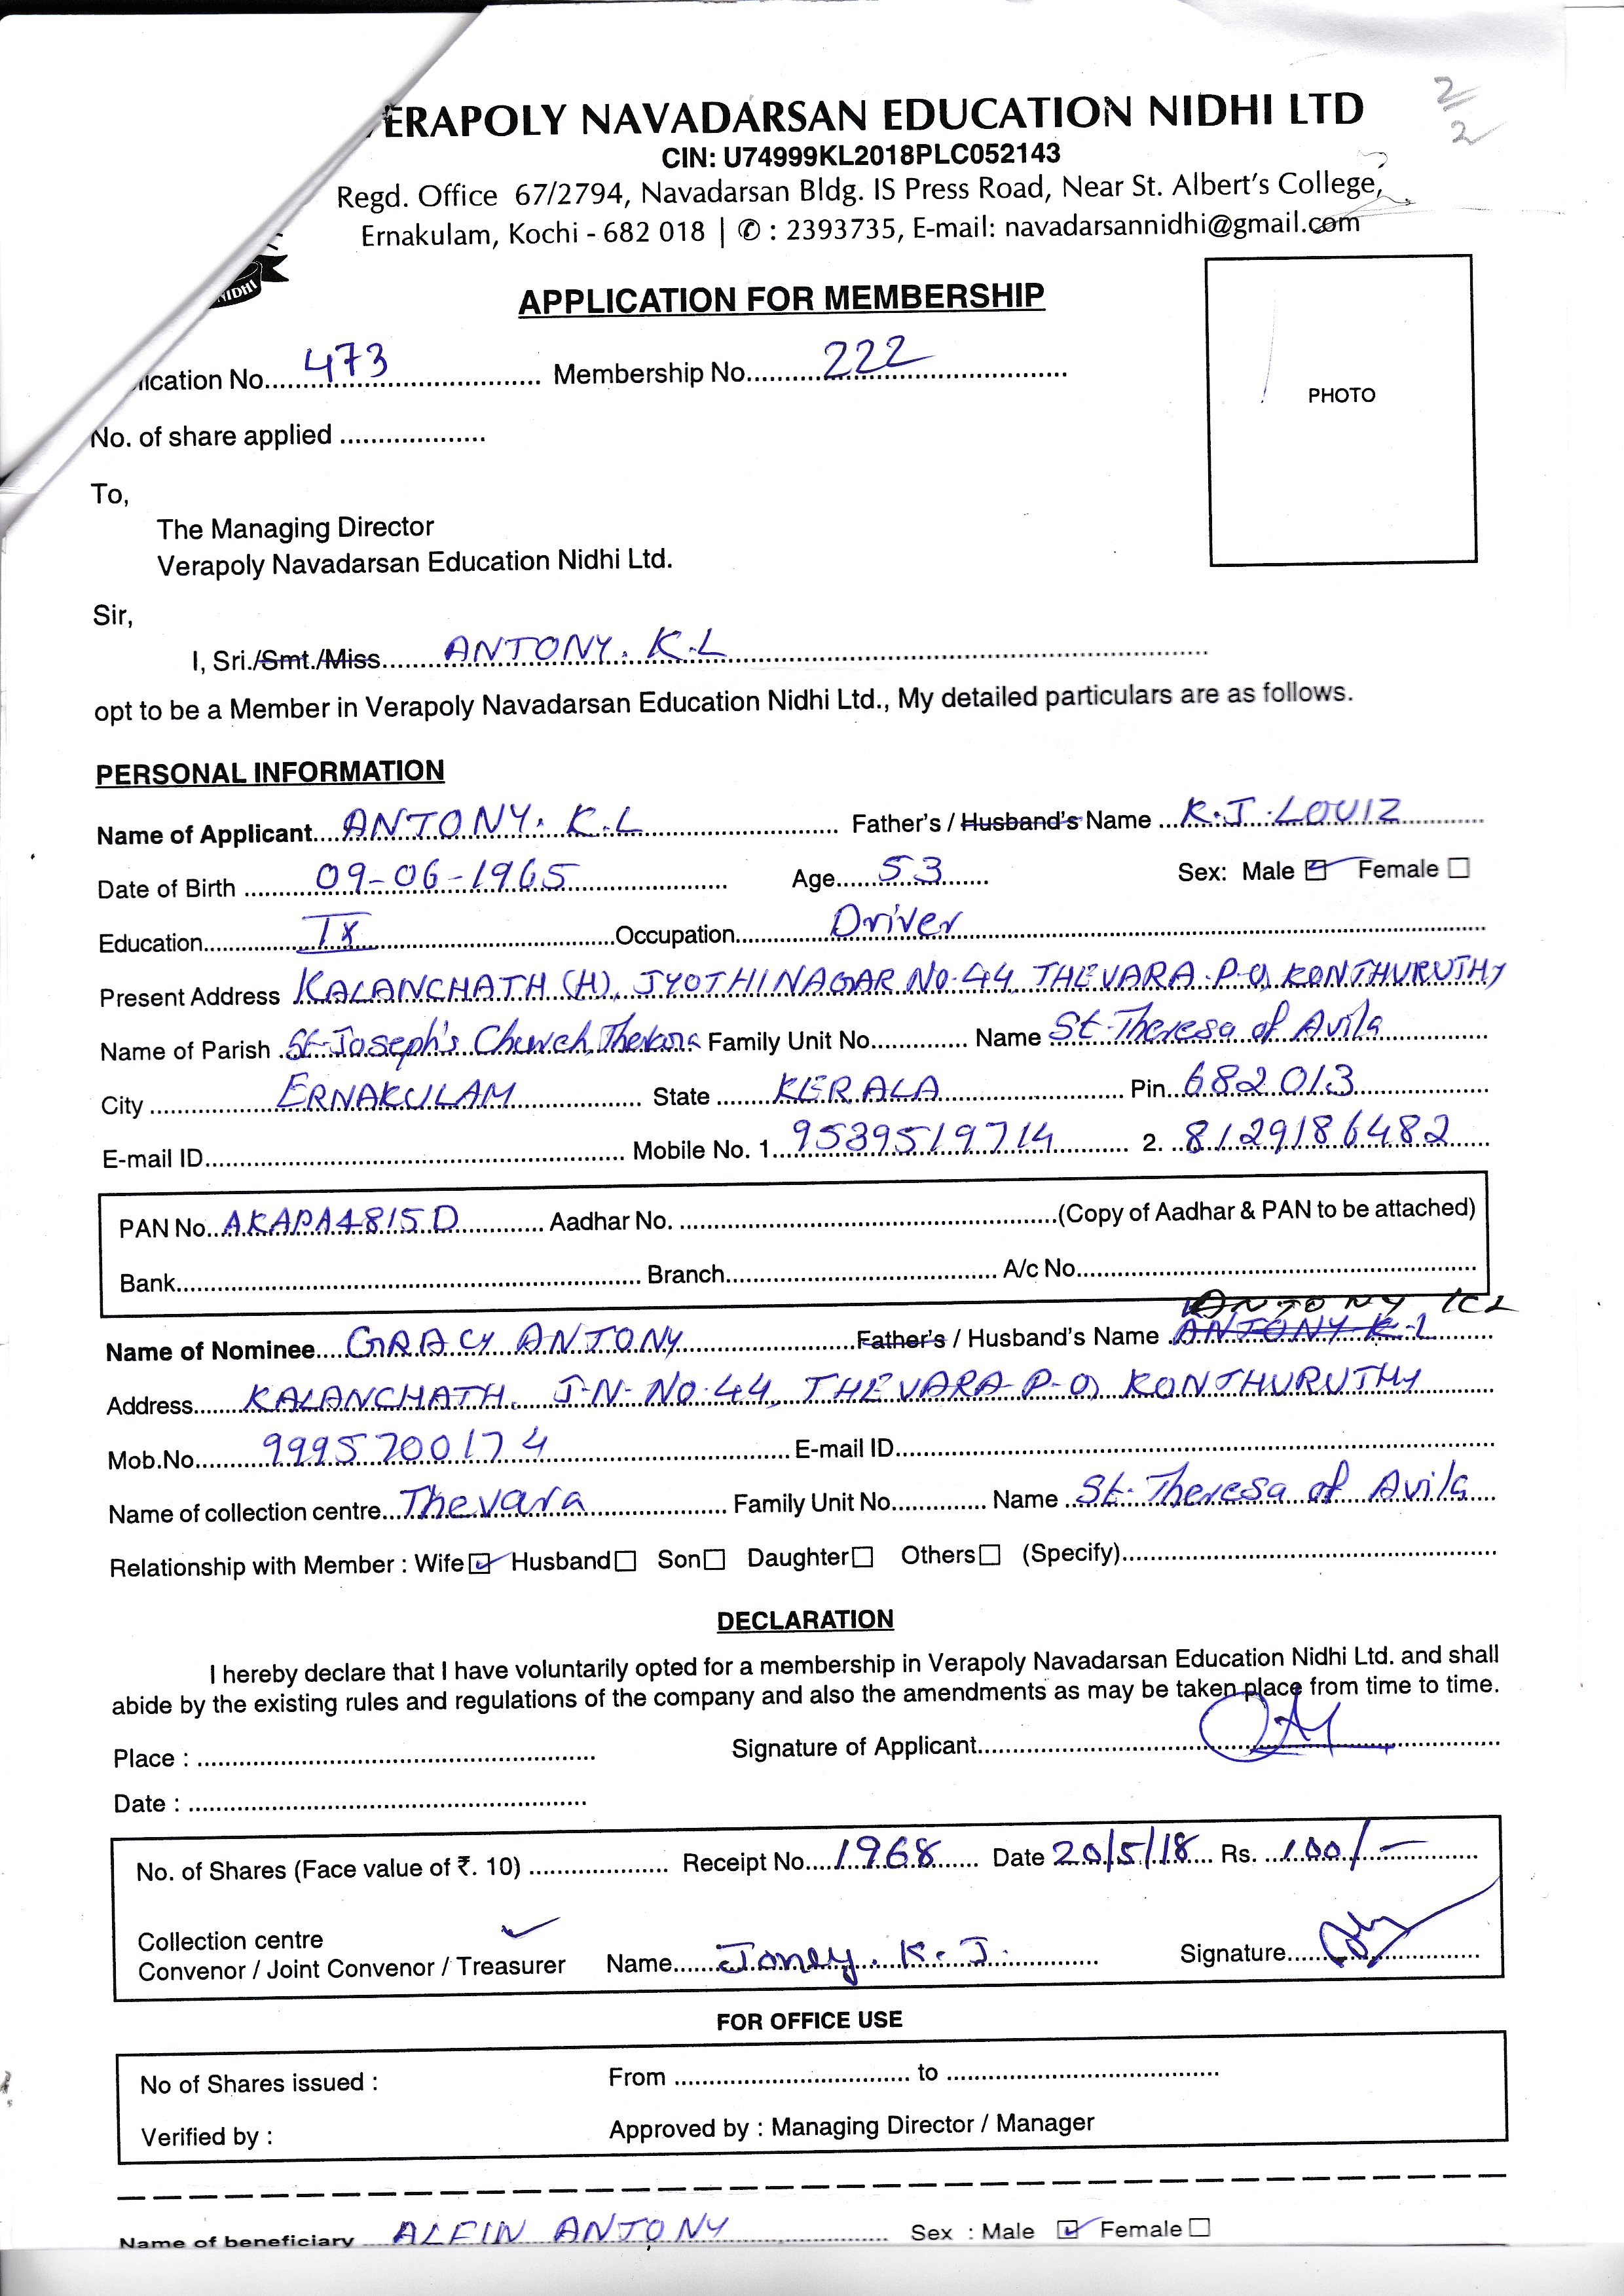 2/2
ERAPOLY NAVADARSAN EDUCATION NIDHI LTD
CIN: U74999KL2018PLC052143
Regd. Office 67/2794, Navadarsan Bldg. IS Press Road, Near St. Albert's College,
Ernakulam, Kochi - 682 018 | ✆ : 2393735, E-mail: navadarsannidhi@gmail.com
NIDHI
APPLICATION FOR MEMBERSHIP
lication No. 473 Membership No. 222
PHOTO
No. of share applied
To,
The Managing Director
Verapoly Navadarsan Education Nidhi Ltd.
Sir,
I, Sri./Smt./Miss. ANTONY. K.L
opt to be a Member in Verapoly Navadarsan Education Nidhi Ltd., My detailed particulars are as follows.
PERSONAL INFORMATION
Name of Applicant ANTONY. K.L Father's / Husband's Name K.J. LOUIZ
Date of Birth 09-06-1965 Age 53 Sex: Male ☑ Female ☐
Education IX Occupation Driver
Present Address KALANCHATH (H), JYOTHINAGAR NO-44, THEVARA-P-O, KONTHURUTHY
Name of Parish St-Joseph's Church, Family Unit No. Name St-Theresa of Avila
City ERNAKULAM State KERALA Pin 682013
E-mail ID Mobile No. 1. 9539519714 2. 8129186482
PAN No. AKAPA4815D Aadhar No. (Copy of Aadhar & PAN to be attached)
Bank Branch A/c No.
ANTONY KL
Name of Nominee GRACY ANTONY Father's / Husband's Name ANTONY K-L
Address KALANCHATH, J-N-NO-44, THEVARA-P-O, KONTHURUTHY
Mob.No. 9995700174 E-mail ID
Name of collection centre Thevara Family Unit No. Name St-Theresa of Avila
Relationship with Member : Wife ☑ Husband ☐ Son ☐ Daughter ☐ Others ☐ (Specify)
DECLARATION
I hereby declare that I have voluntarily opted for a membership in Verapoly Navadarsan Education Nidhi Ltd. and shall
abide by the existing rules and regulations of the company and also the amendments as may be taken place from time to time.
Place : Signature of Applicant
Date :
No. of Shares (Face value of ₹. 10) Receipt No. 1968 Date 20/5/18 Rs. 100/-
Collection centre
Convenor / Joint Convenor / Treasurer Name Joney. K. J. Signature
FOR OFFICE USE
No of Shares issued : From to
Verified by : Approved by : Managing Director / Manager
Name of beneficiary ALFIN ANTONY Sex : Male ☑ Female ☐